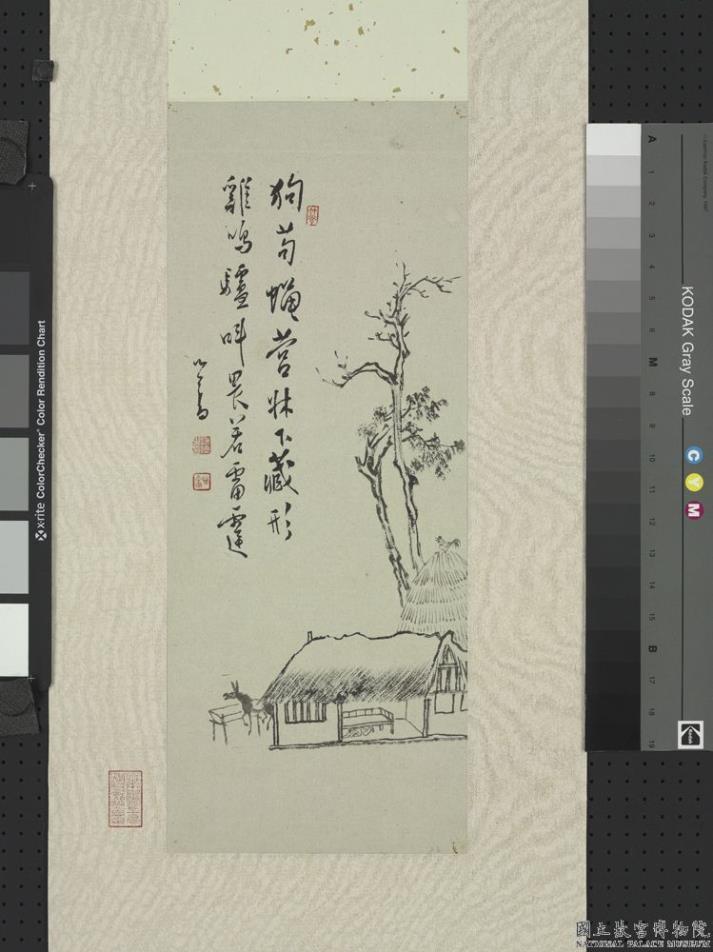 狗苟蠅營牀下藏形
雞鳴驢叫畏若雷霆
心畬
x-rite ColorChecker Color Rendition Chart
KODAK Gray Scale
C
Y
M
A
1
2
3
4
5
6
M
8
9
10
11
12
13
14
15
B
17
18
19
Kodak
國立故宮博物院
NATIONAL PALACE MUSEUM